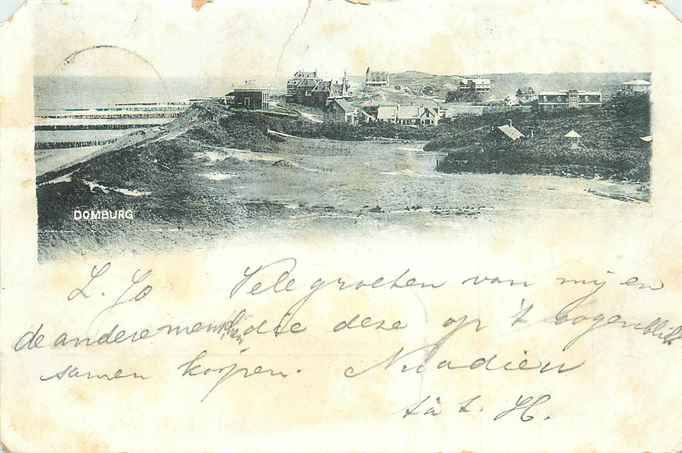 DOMBURG
L. Jo Vele groeten van mij en
de andere die deze op 't oogenblik
samen koopen. Nu adieu
tà t. H.